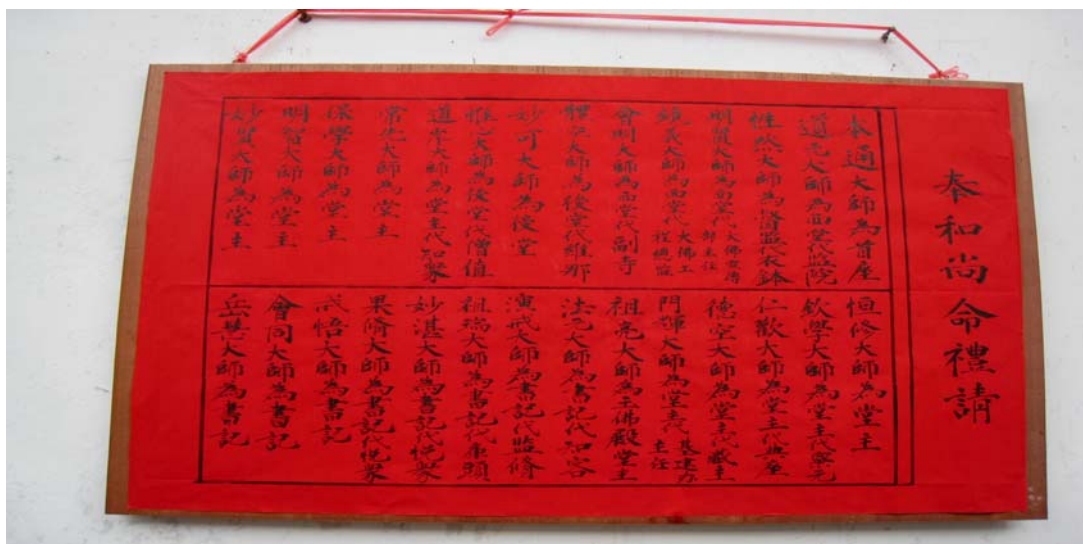 奉和尚命禮請
本通大師為首座
道元大師為西堂代監院
性然大師為督監代衣鉢
明賢大師為西堂代
鏡義大師為西堂代大佛工程總監
會明大師為西堂代副寺
體空大師為後堂代維那
妙可大師為後堂
惟心大師為後堂代僧值
道本大師為堂主代知眾
常光大師為堂主
深學大師為堂主
明智大師為堂主
妙賢大師為堂主
恒修大師為堂主
欽學大師為堂主代寮元
仁歡大師為堂主代典座
德空大師為堂主代藏主
門輝大師為堂主代基建办主任
祖亮大師為玉佛殿堂主
法元大師為書記代知客
演戒大師為書記代監修
祖瑞大師為書記代庫頭
妙湛大師為書記代悅眾
果脩大師為書記代悅眾
戒悟大師為書記
會同大師為書記
岳慧大師為書記